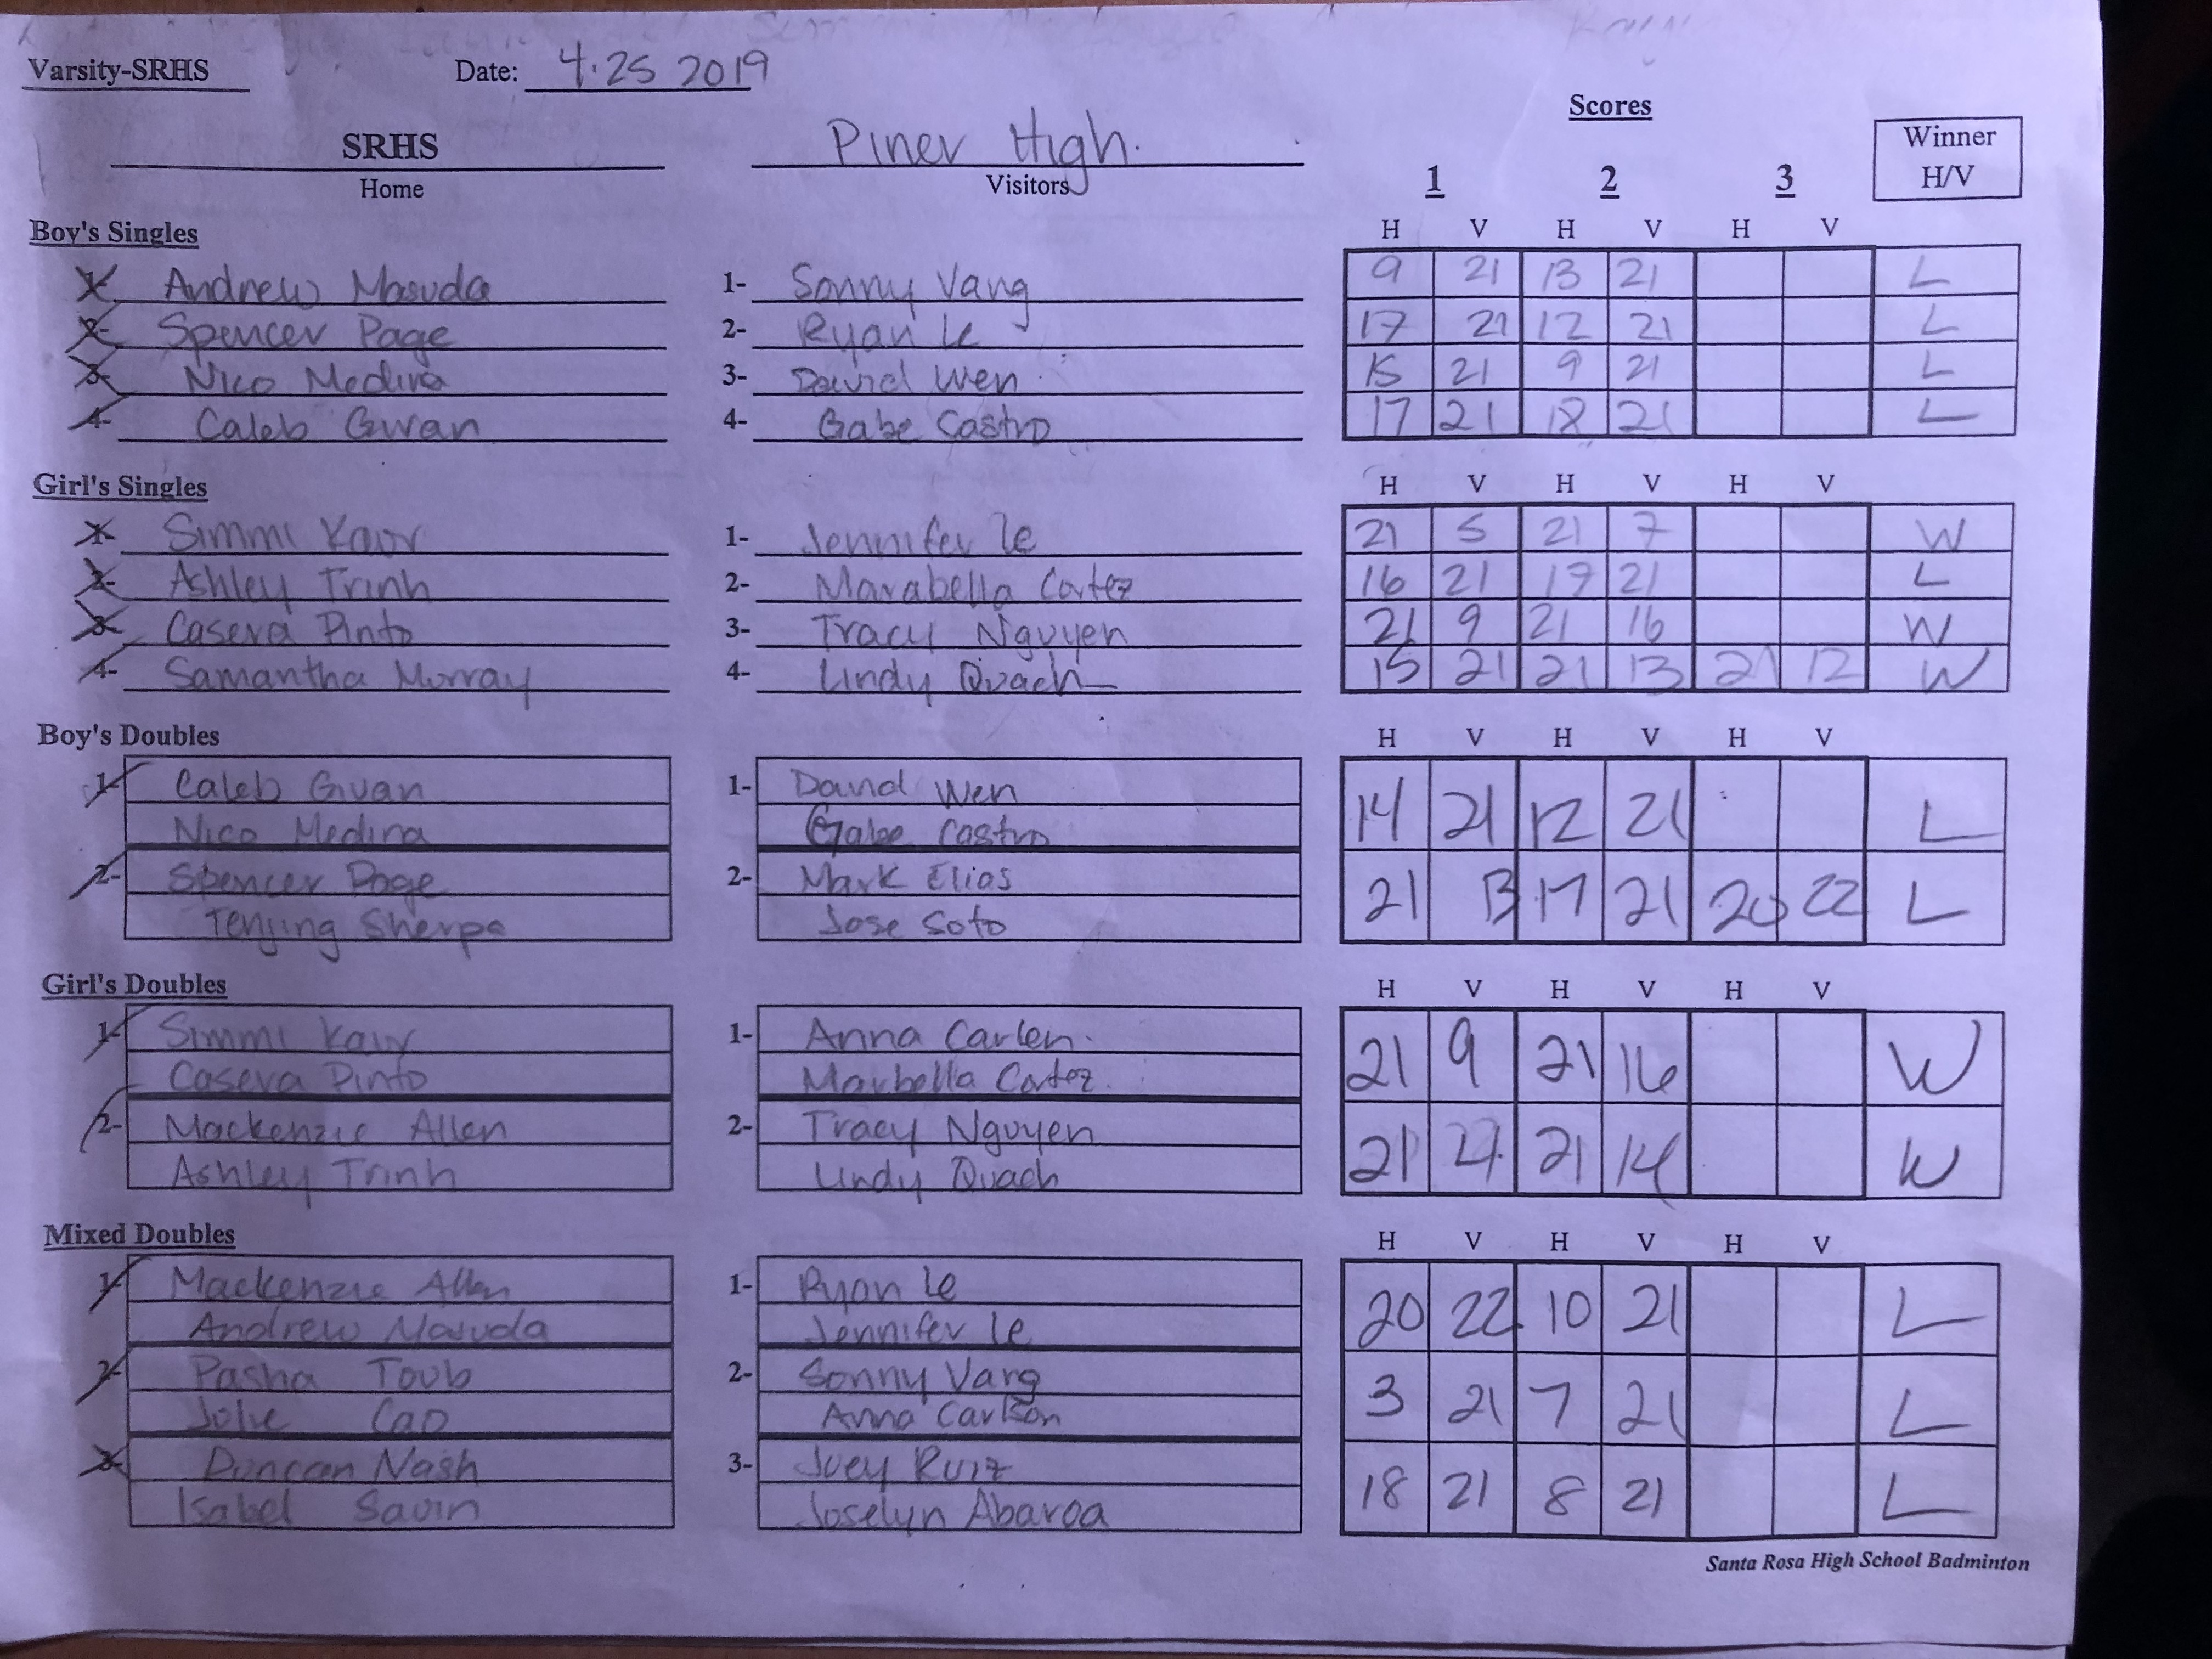 Varsity-SRHS Date: 4.25 2019
Scores
SRHS Piner High. Winner
Home Visitors 1 2 3 H/V
Boy's Singles H V H V H V
1- Andrew Masuda 1- Sonny Vang 9 21 13 21 L
2- Spencer Page 2- Ryan Le 17 21 12 21 L
3- Nico Medina 3- David Wen 15 21 9 21 L
4- Caleb Guan 4- Gabe Castro 17 21 18 21 L
Girl's Singles H V H V H V
1- Simmi Kaur 1- Jennifer Le 21 5 21 7 W
2- Ashley Trinh 2- Marabella Cortez 16 21 17 21 L
3- Caseva Pinto 3- Tracy Nguyen 21 9 21 16 W
4- Samantha Murray 4- Lindy Quach 15 21 21 13 21 12 W
Boy's Doubles H V H V H V
1- Caleb Guan 1- David Wen 14 21 12 21 L
Nico Medina Gabe Castro
2- Spencer Page 2- Mark Elias 21 13 17 21 20 22 L
Tenjing Sherpa Jose Soto
Girl's Doubles H V H V H V
1- Simmi Kaur 1- Anna Carlen. 21 9 21 16 W
Caseva Pinto Marbella Cortez.
2- Mackenzie Allen 2- Tracy Nguyen 21 21 14 W
Ashley Trinh Lindy Quach
Mixed Doubles H V H V H V
1- Mackenzie Allen 1- Ryan Le 20 22 10 21 L
Andrew Masuda Jennifer Le
2- Pasha Toub 2- Sonny Vang 3 21 7 21 L
Jolie Cao Anna Carlson
3- Duncan Nash 3- Joey Ruiz 18 21 8 21 L
Isabel Savin Joselyn Abaroa
Santa Rosa High School Badminton